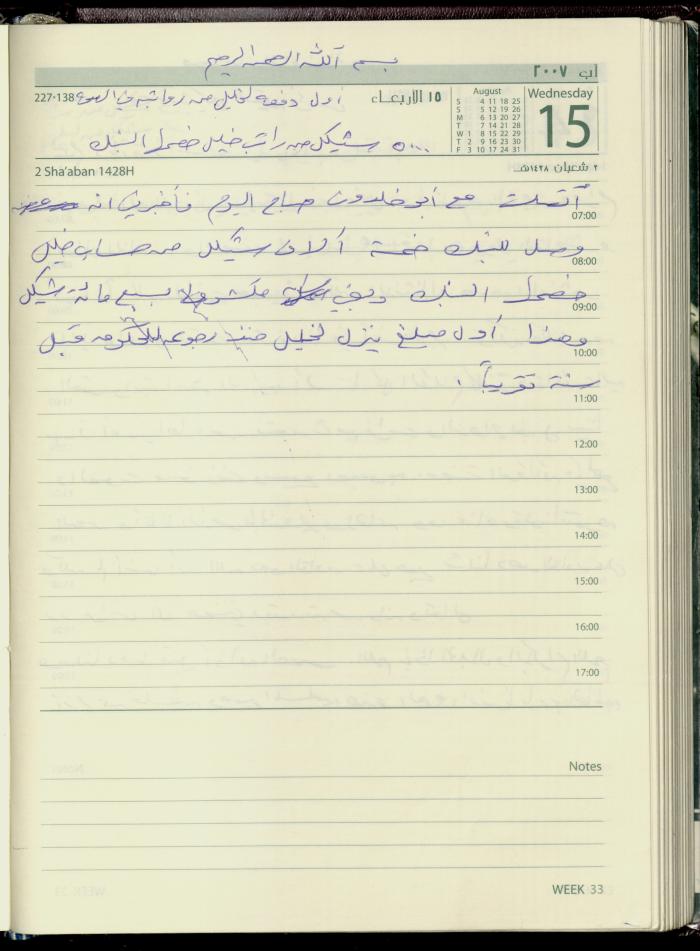 بسم الله الرحمن الرحيم
آب ٢٠٠٧
227-138 اول دفعة لخليل من رواتبه في ١٥ الأربعاء
August
S 4 11 18 25
S 5 12 19 26
M 6 13 20 27
T 7 14 21 28
W 1 8 15 22 29
T 2 9 16 23 30
F 3 10 17 24 31
Wednesday
15
٥٠٠٠ شيكل من راتب خليل خصمها البنك
2 Sha'aban 1428H
٢ شعبان ١٤٢٨هـ
أتصلت مع أبو خلدون صباح اليوم فأخبرني انه
07:00
وصل للبنك خمسة آلاف شيكل من حساب خليل
08:00
خصمها البنك وبقي مكشوفا بسبع مائة شيكل
09:00
وهذا أول مبلغ ينزل لخليل منذ رجوعه للحكومه قبل
10:00
سنة تقريباً .
11:00
12:00
13:00
14:00
15:00
16:00
17:00
Notes
WEEK 33